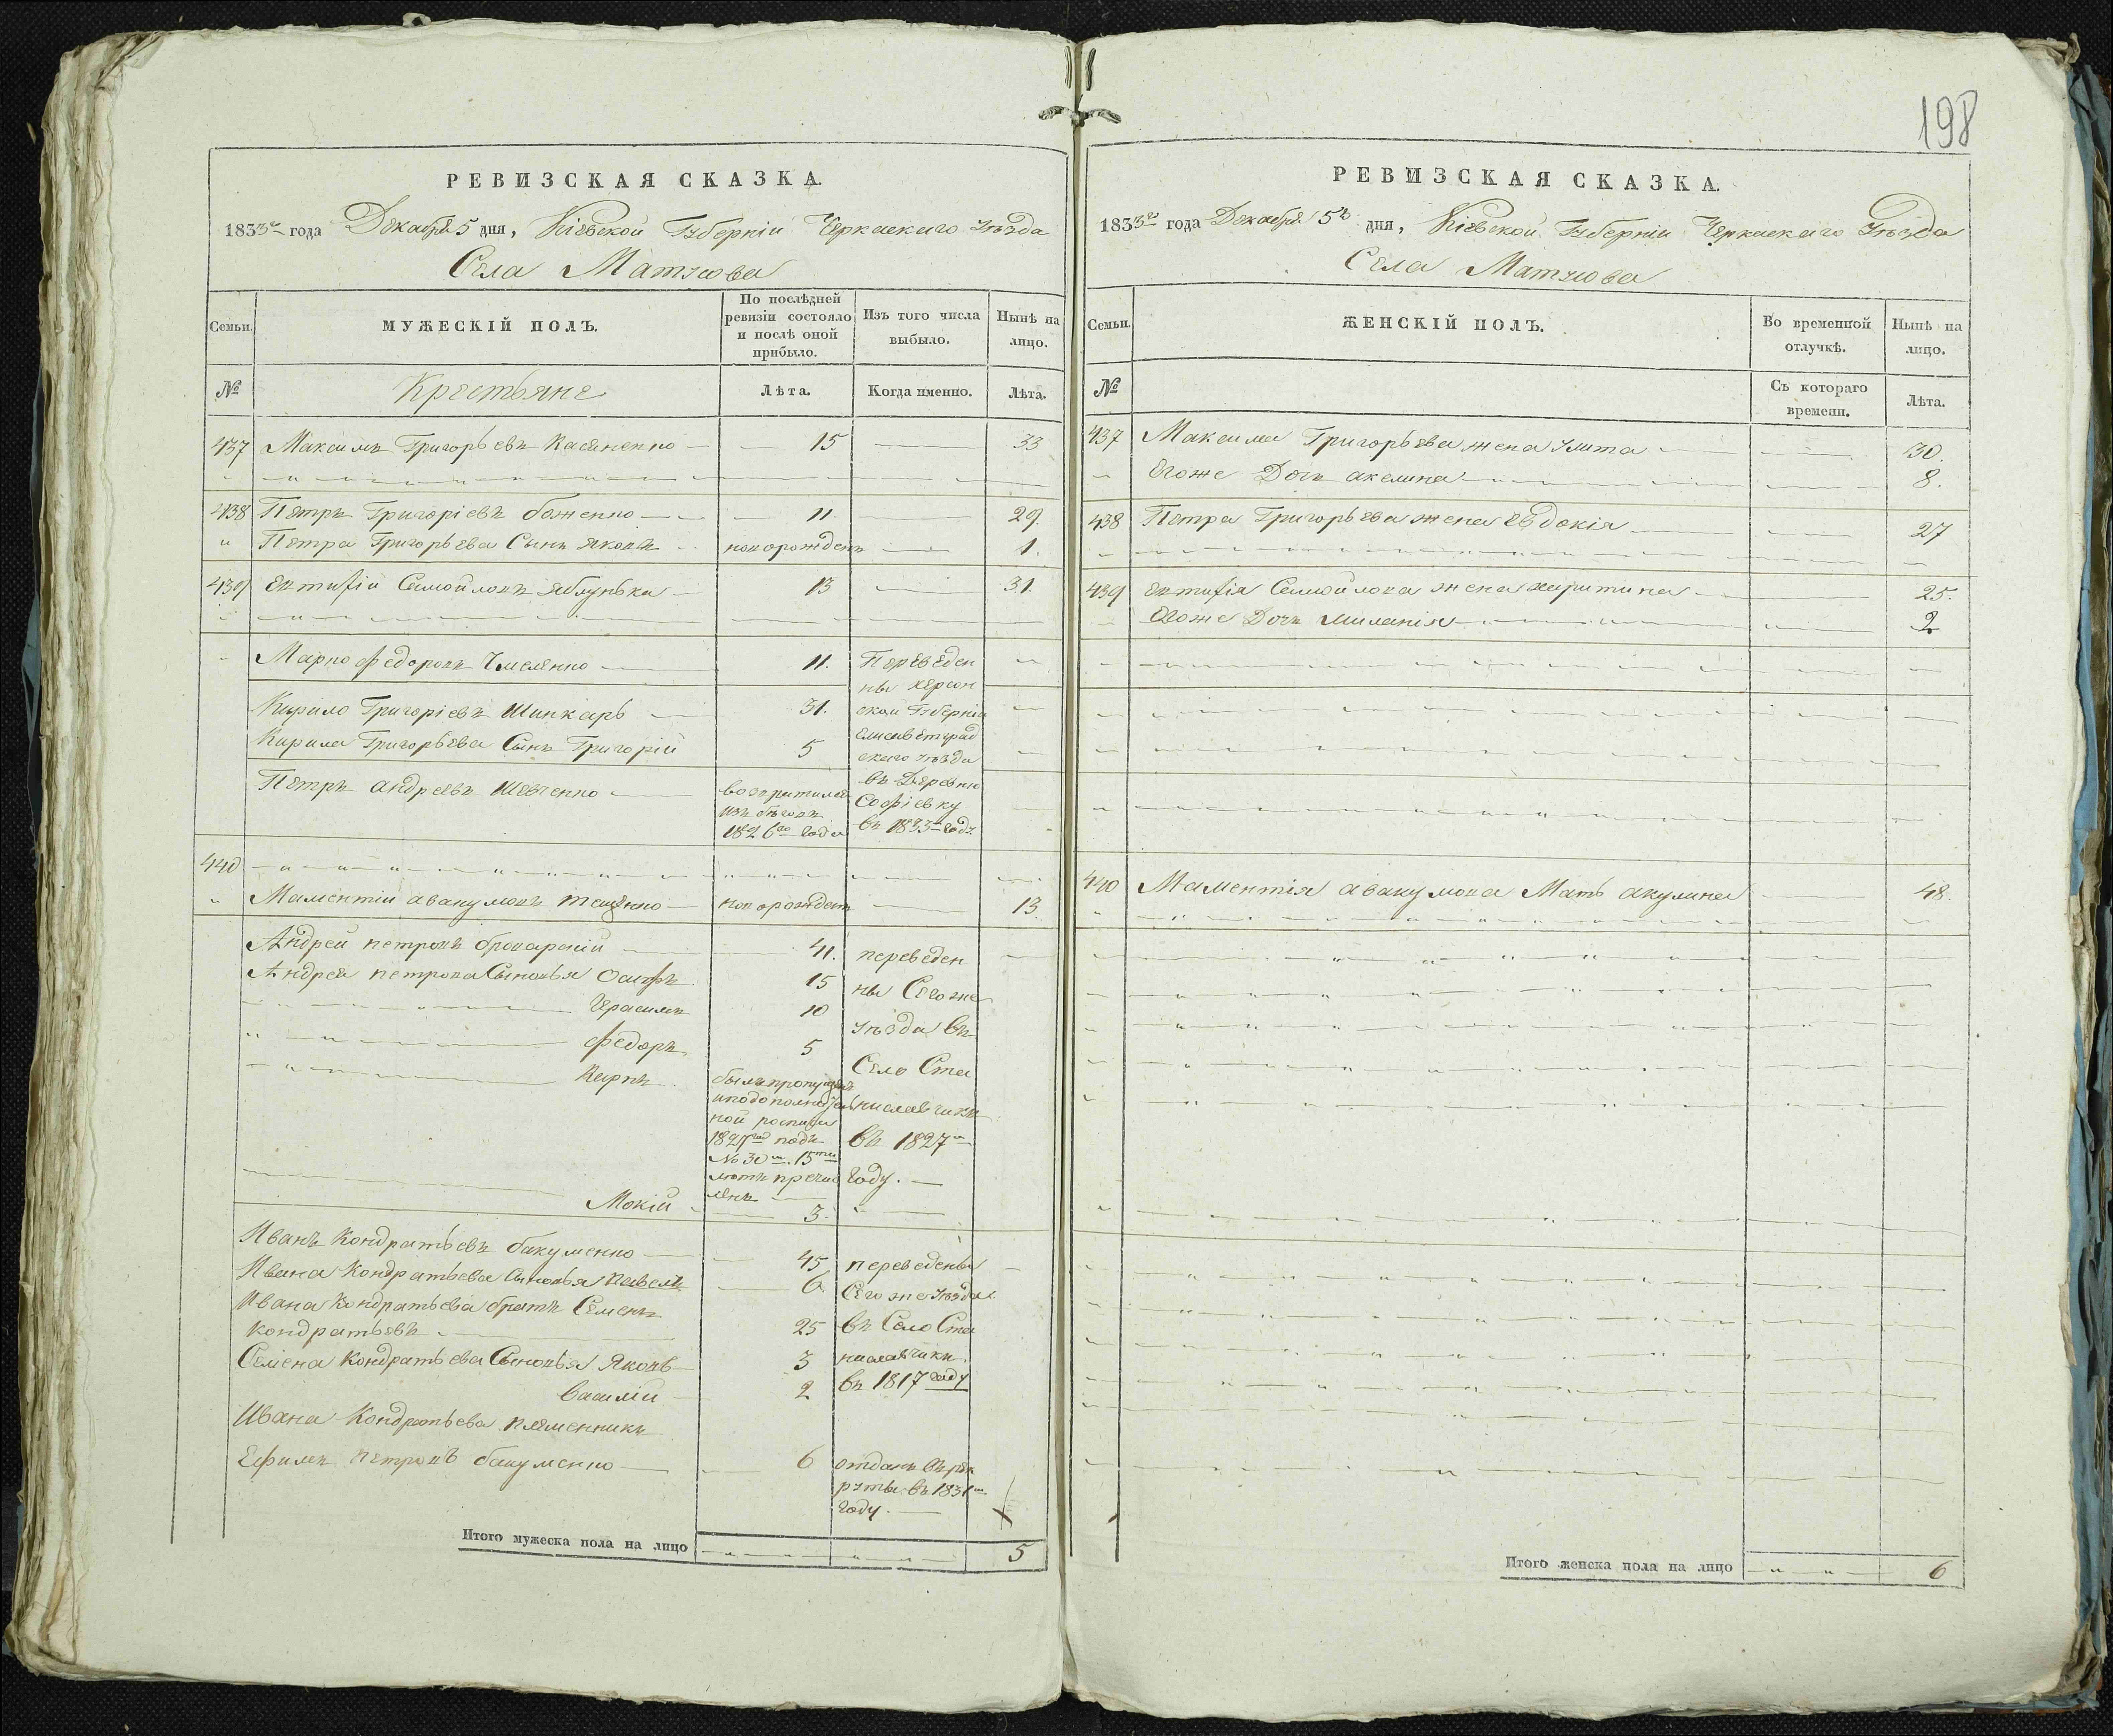 198
РЕВИЗСКАЯ СКАЗКА.
1833го года Декабря 5 дня, Кіевской Губерніи Черкаскаго Уѣзда
Села Матусова
Семьи.
МУЖЕСКІЙ ПОЛЪ.
По послѣдней ревизіи состояло и послѣ оной прибыло.
Изъ того числа выбыло.
Нынѣ на лицо.
№
Крестьяне
Лѣта.
Когда именно.
Лѣта.
437 Максимъ Григорьевъ Касяненко 15 33
438 Петръ Григоріевъ боженко 11 29.
Петра Григорьева Сынъ Яковъ новорожденъ 1.
439 Самойловъ яблунька 13 31.
Марко федоровъ 11. Переведен
ны херсон
Кирило Григоріевъ Шинкарь 31. ской Губерніи
Елисаветград
Кирила Григорьева Сынъ Григорій 5 скаго уѣзда
Петръ андреевъ Шевченко въ Деревню
изъ бѣговъ Софіевку
1826го года въ 1833м году.
440
Маментій авакумовъ новорожденъ 13.
Андрей петровъ броварскій 41. переведен
Андрея петрова Сыновья Осипъ 15 ны Сегоже
Герасимъ 10
уѣзда въ
федоръ 5
Село Ста
Карпъ былъ пропущенъ
ниславчикъ
ной
1827 подъ въ 1827м
№ 30м. 15ти
лѣтъ году.
ленъ
Мокій 3.
Иванъ Кондратьевъ бакуменко 45 переведены
Ивана Кондратьева Сыновья павелъ 6 Сегоже уѣзда
Ивана Кондратьева братъ Семенъ
Кондратьевъ 25 въ Село Ста
Семена Кондратьева Сыновья Яковъ 3 ниславчикъ
Василій 2 въ 1817 году
Ивана Кондратьева племенникъ
Ефимъ петровъ бакуменко 6 отданъ въ рек
руты въ 1831м
году.
Итого мужеска пола на лицо 5
РЕВИЗСКАЯ СКАЗКА.
1833го года Декабря 5го дня, Кіевской Губерніи Черкаскаго Уѣзда
Села Матусова
Семьи.
ЖЕНСКІЙ ПОЛЪ.
Во временной отлучкѣ.
Нынѣ на лицо.
№
Съ котораго времени.
Лѣта.
437 Максима Григорьева жена улита 30.
Егоже Дочь акелина 8.
438 Петра Григорьева жена Евдокія 27
439 Самойлова жена харитина 25.
Егоже Дочь миланія 2
440 Маментія авакумова Мать акулина 48.
Итого женска пола на лицо 6